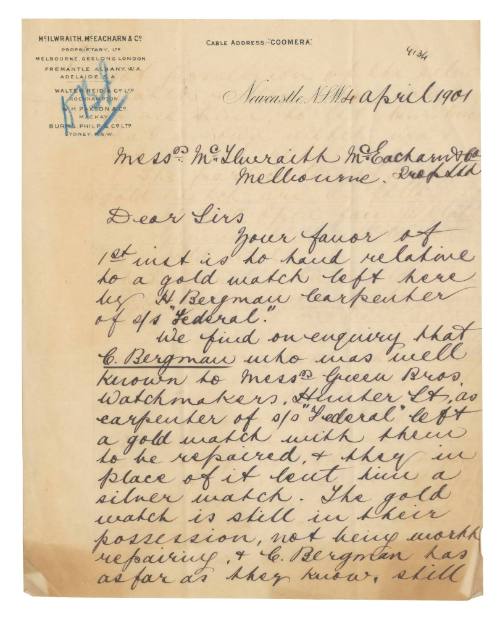 McILWRAITH, McEACHARN & Co
PROPRIETARY, LTD
MELBOURNE, GEELONG, LONDON
FREMANTLE, ALBANY, W.A.
ADELAIDE S.A.
WALTER REID & Co LTD
ROCKHAMPTON
PAXTON & Co
MACKAY
BURNS, PHILP & Co LTD
SYDNEY N.S.W.
CABLE ADDRESS: "COOMERA"
Newcastle, N.S.W. 4 April 1901
Messrs McIlwraith McEacharn & Co
Melbourne. Prop Ltd
Dear Sirs
Your favor of
1st inst is to hand relative
to a gold watch left here
by H Bergman Carpenter
of s/s "Federal".
We find on enquiry that
C. Bergman who was well
known to Messrs Green Bros,
Watchmakers, Hunter St, as
carpenter of s/s "Federal" left
a gold watch with them
to be repaired, & they in
place of it lent him a
silver watch. The gold
watch is still in their
possession, not being worth
repairing, & C. Bergman has
as far as they know, still